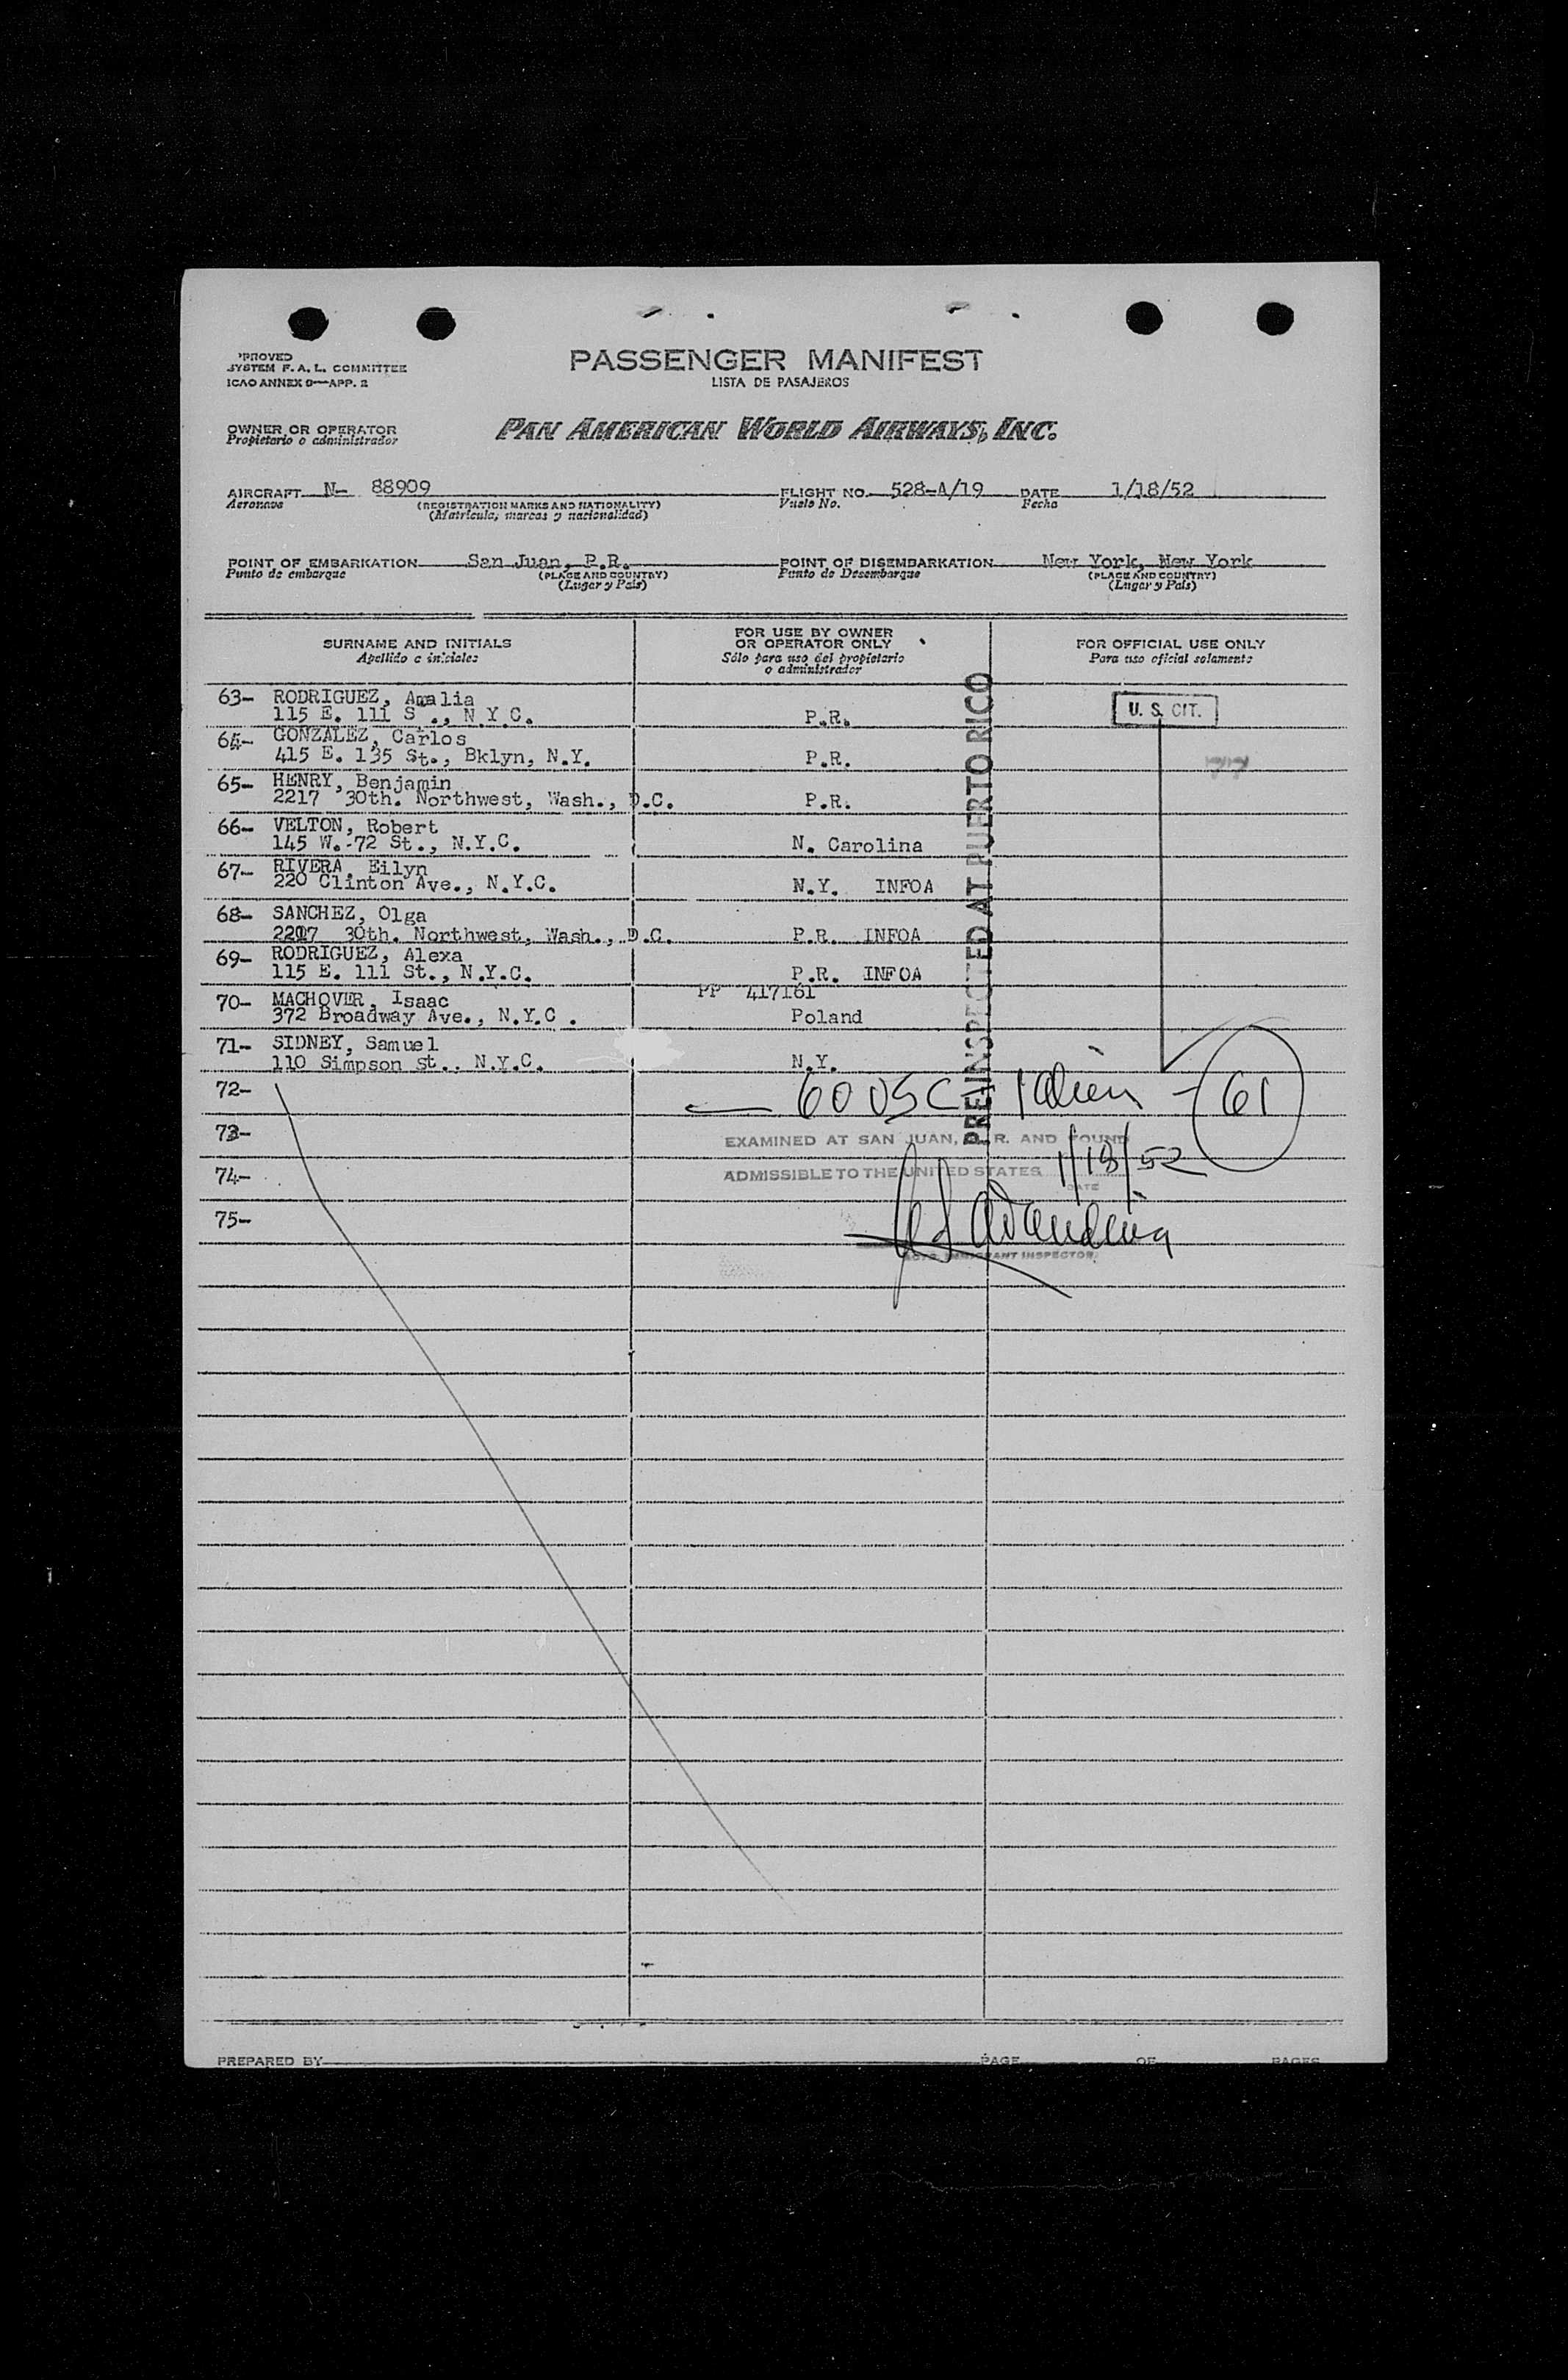 PROVED
SYSTEM F. A. L. COMMITTEE
ICAO ANNEX 9—APP. 2
PASSENGER MANIFEST
LISTA DE PASAJEROS
OWNER OR OPERATOR
Propietario o administrador
PAN AMERICAN WORLD AIRWAYS, INC.
AIRCRAFT N- 88909 FLIGHT NO. 528-A/19 DATE 1/18/52
Aeronave (REGISTRATION MARKS AND NATIONALITY) Vuelo No. Fecha
(Matrícula, marcas y nacionalidad)
POINT OF EMBARKATION San Juan, P.R. POINT OF DISEMBARKATION New York, New York
Punto de embarque (PLACE AND COUNTRY) Punto de Desembarque (PLACE AND COUNTRY)
(Lugar y País) (Lugar y País)
SURNAME AND INITIALS
Apellido e iniciales
FOR USE BY OWNER
OR OPERATOR ONLY
Sólo para uso del propietario
o administrador
FOR OFFICIAL USE ONLY
Para uso oficial solamente
63- RODRIGUEZ, Amalia
115 E. 111 S ., N.Y.C. P.R.
U. S. CIT.
64- GONZALEZ, Carlos
415 E. 135 St., Bklyn, N.Y. P.R.
77
65- HENRY, Benjamin
2217 30th. Northwest, Wash., D.C. P.R.
66- VELTON, Robert
145 W.-72 St., N.Y.C. N. Carolina
67- RIVERA, Eilyn
220 Clinton Ave., N.Y.C. N.Y. INFOA
68- SANCHEZ, Olga
2217 30th. Northwest, Wash., D.C. P.R. INFOA
69- RODRIGUEZ, Alexa
115 E. 111 St., N.Y.C. P.R. INFOA
70- MACHOVER, Isaac PP 417161
372 Broadway Ave., N.Y.C . Poland
71- SIDNEY, Samuel
110 Simpson st., N.Y.C. N.Y.
PREINSPECTED AT PUERTO RICO
72- 60 USC 1 alien - 61
73-
EXAMINED AT SAN JUAN, P.R. AND FOUND
74-
ADMISSIBLE TO THE UNITED STATES 1/18/52
DATE
75-
IMMIGRANT INSPECTOR
PREPARED BY PAGE OF PAGES